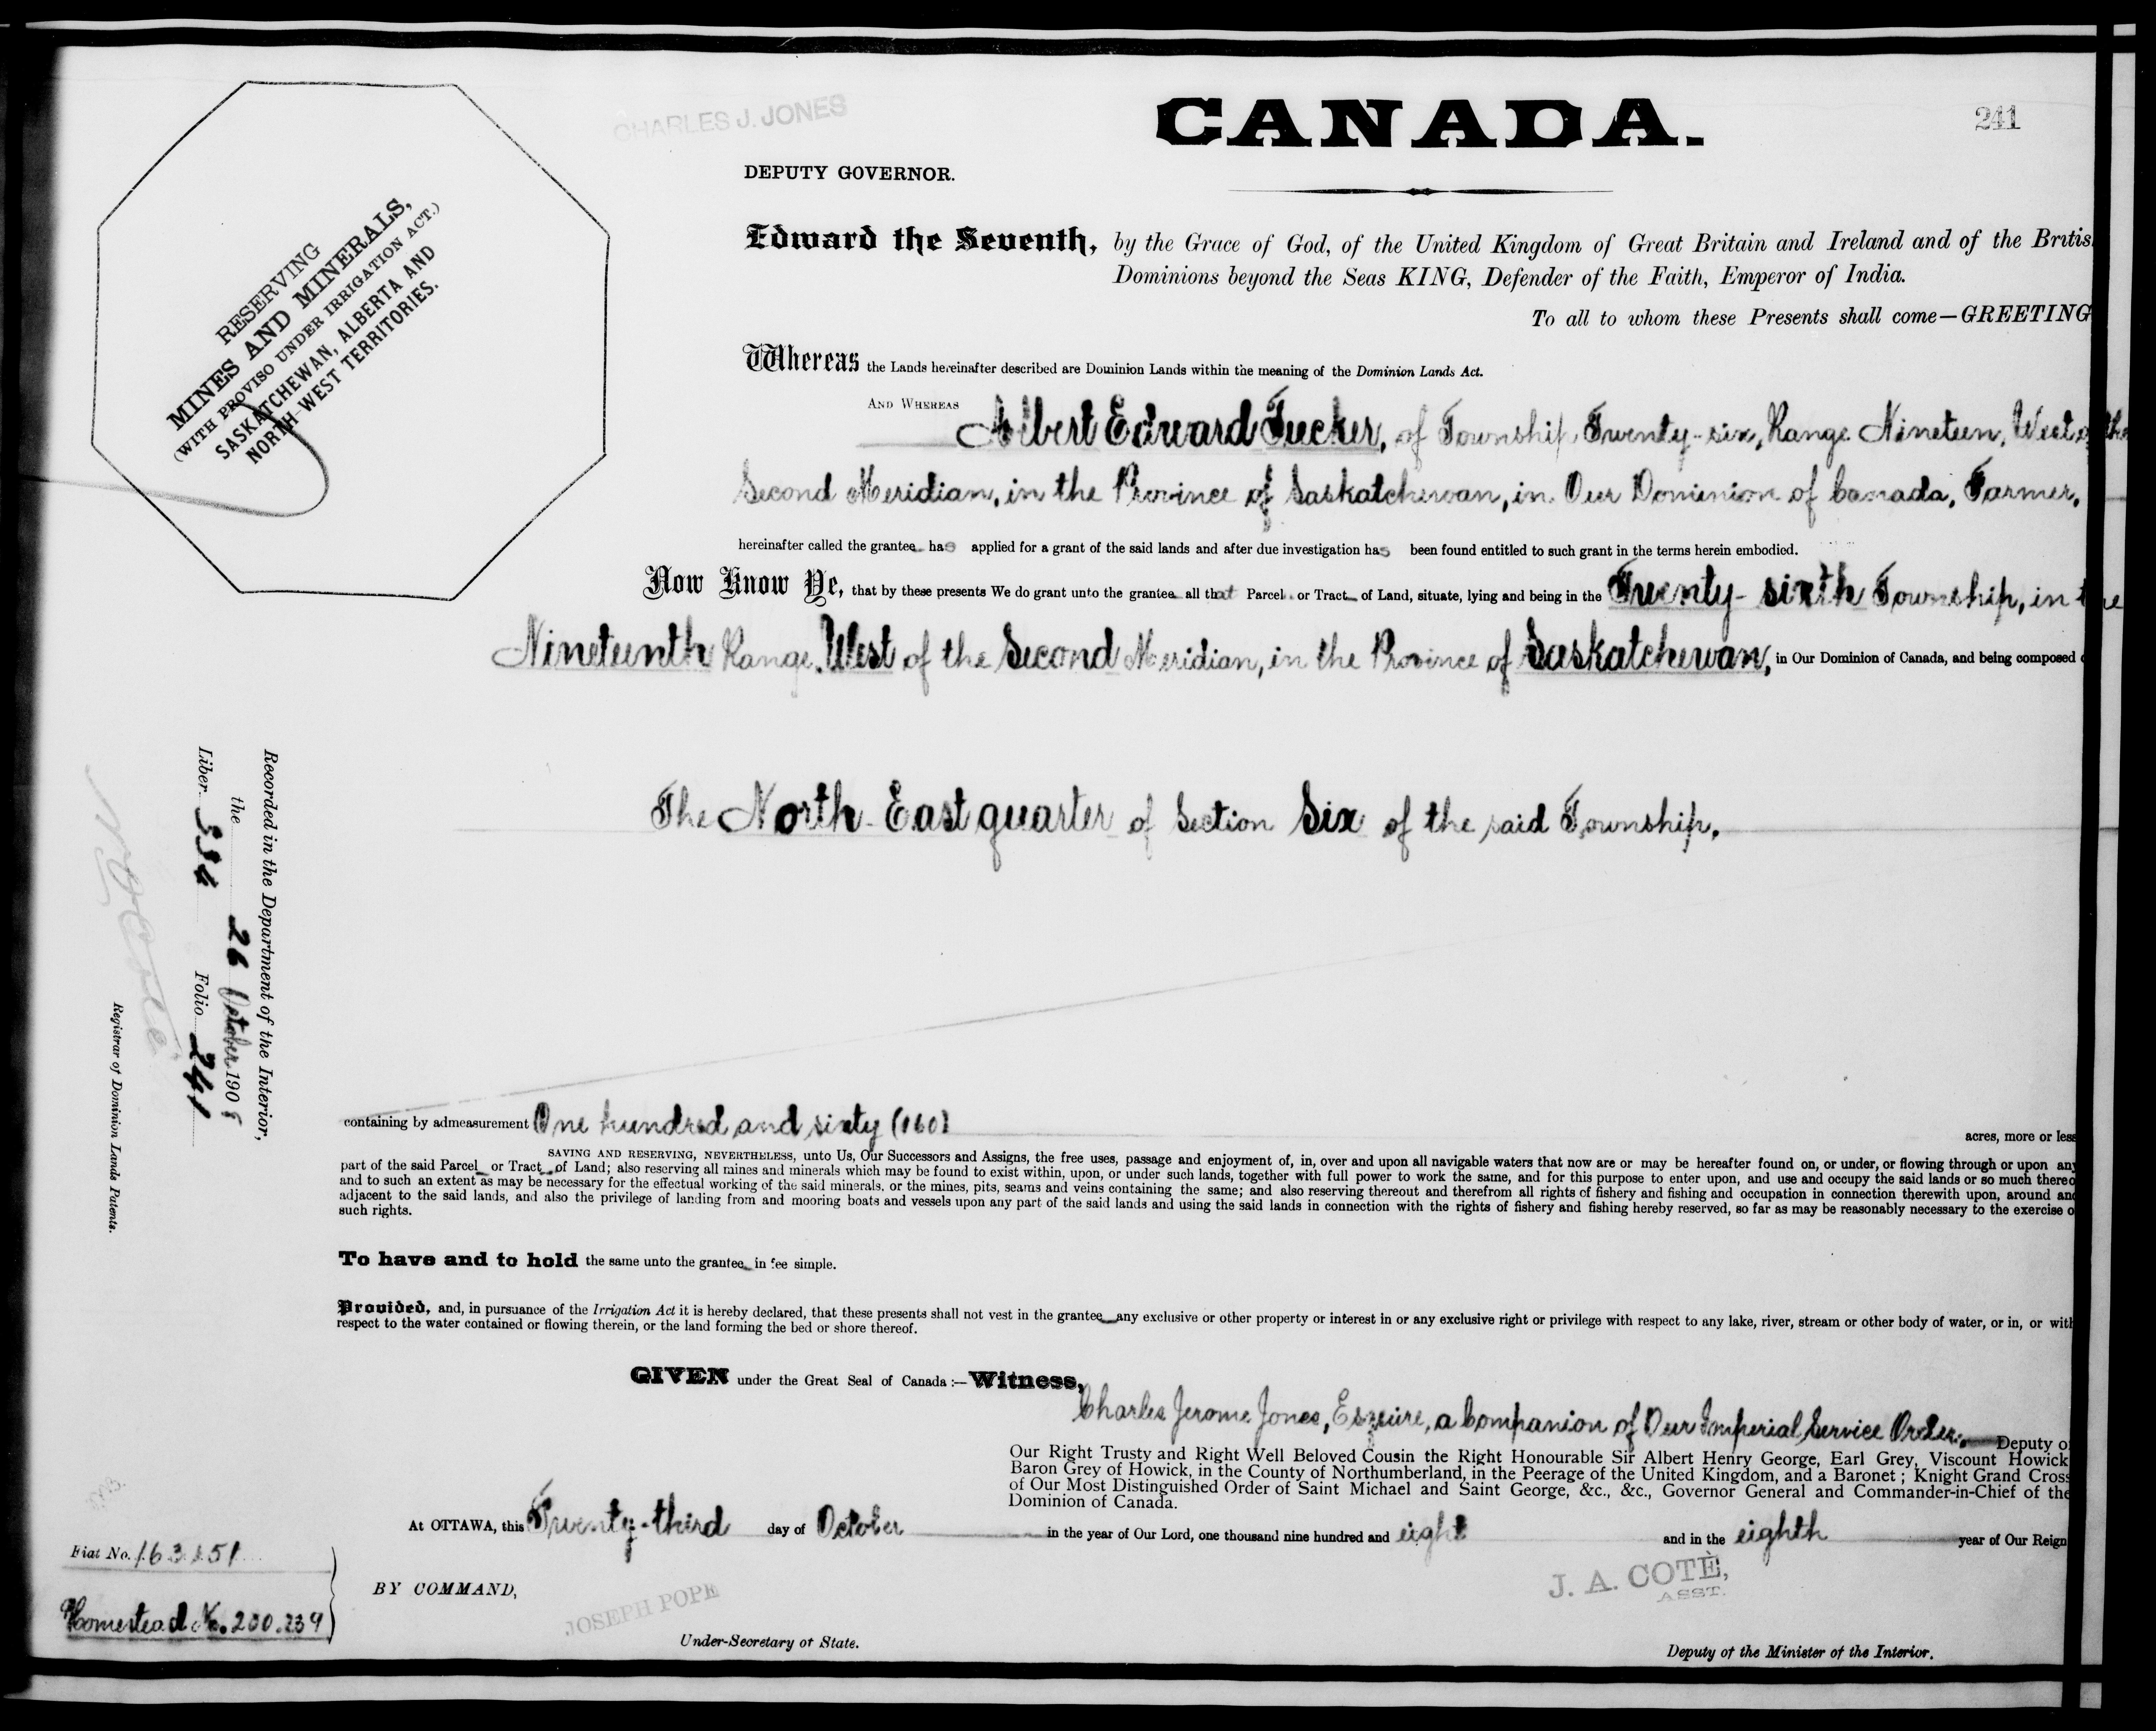 CHARLES J. JONES
CANADA.
241
DEPUTY GOVERNOR.
RESERVING
MINES AND MINERALS,
(WITH PROVISO UNDER IRRIGATION ACT.)
SASKATCHEWAN, ALBERTA AND
NORTH-WEST TERRITORIES.
Edward the Seventh, by the Grace of God, of the United Kingdom of Great Britain and Ireland and of the Britis
Dominions beyond the Seas KING, Defender of the Faith, Emperor of India.
To all to whom these Presents shall come—GREETING
Whereas the Lands hereinafter described are Dominion Lands within the meaning of the Dominion Lands Act.
AND WHEREAS Albert Edward Tucker, of Township Twenty-six, Range Nineteen, West of the
Second Meridian, in the Province of Saskatchewan, in Our Dominion of Canada, Farmer,
hereinafter called the grantee has applied for a grant of the said lands and after due investigation has been found entitled to such grant in the terms herein embodied.
Now Know Ye, that by these presents We do grant unto the grantee all that Parcel or Tract of Land, situate, lying and being in the Twenty-sixth Township, in the
Nineteenth Range West of the Second Meridian, in the Province of Saskatchewan, in Our Dominion of Canada, and being composed o
The North-East quarter of Section Six of the said Township.
Recorded in the Department of the Interior,
the 26 October 1908
Liber Folio 241
Registrar of Dominion Lands Patents.
containing by admeasurement One hundred and sixty (160) acres, more or less
SAVING AND RESERVING, NEVERTHELESS, unto Us, Our Successors and Assigns, the free uses, passage and enjoyment of, in, over and upon all navigable waters that now are or may be hereafter found on, or under, or flowing through or upon any
part of the said Parcel or Tract of Land; also reserving all mines and minerals which may be found to exist within, upon, or under such lands, together with full power to work the same, and for this purpose to enter upon, and use and occupy the said lands or so much thereo
and to such an extent as may be necessary for the effectual working of the said minerals, or the mines, pits, seams and veins containing the same; and also reserving thereout and therefrom all rights of fishery and fishing and occupation in connection therewith upon, around and
adjacent to the said lands, and also the privilege of landing from and mooring boats and vessels upon any part of the said lands and using the said lands in connection with the rights of fishery and fishing hereby reserved, so far as may be reasonably necessary to the exercise o
such rights.
To have and to hold the same unto the grantee in fee simple.
Provided, and, in pursuance of the Irrigation Act it is hereby declared, that these presents shall not vest in the grantee any exclusive or other property or interest in or any exclusive right or privilege with respect to any lake, river, stream or other body of water, or in, or with
respect to the water contained or flowing therein, or the land forming the bed or shore thereof.
GIVEN under the Great Seal of Canada:—Witness,
Charles Jerome Jones, Esquire, a Companion of Our Imperial Service Order, Deputy o
Our Right Trusty and Right Well Beloved Cousin the Right Honourable Sir Albert Henry George, Earl Grey, Viscount Howick
Baron Grey of Howick, in the County of Northumberland, in the Peerage of the United Kingdom, and a Baronet; Knight Grand Cross
of Our Most Distinguished Order of Saint Michael and Saint George, &c., &c., Governor General and Commander-in-Chief of the
Dominion of Canada.
At OTTAWA, this Twenty-third day of October in the year of Our Lord, one thousand nine hundred and eight and in the eighth year of Our Reign
Fiat No. 163151
BY COMMAND,
Homestead No. 200.239
JOSEPH POPE
Under-Secretary of State.
J. A. COTÈ,
ASST.
Deputy of the Minister of the Interior.